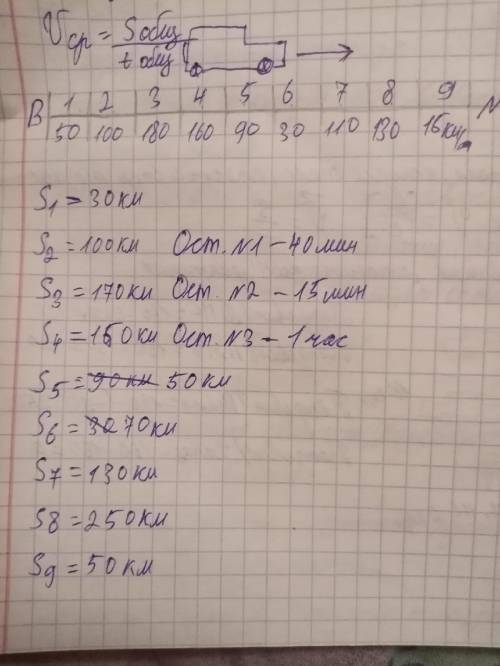 Vср = Sобщ
t общ
1 2 3 4 5 6 7 8 9 N
В 50 100 180 160 90 30 110 130 16км
S1 = 30 км
S2 = 100 км Ост. №1 - 40 мин
S3 = 170 км Ост. №2 - 15 мин
S4 = км Ост. №3 - 1 час
S5 = 90 км 50 км
S6 = 30 70 км
S7 = 130 км
S8 = 250 км
S9 = 50 км